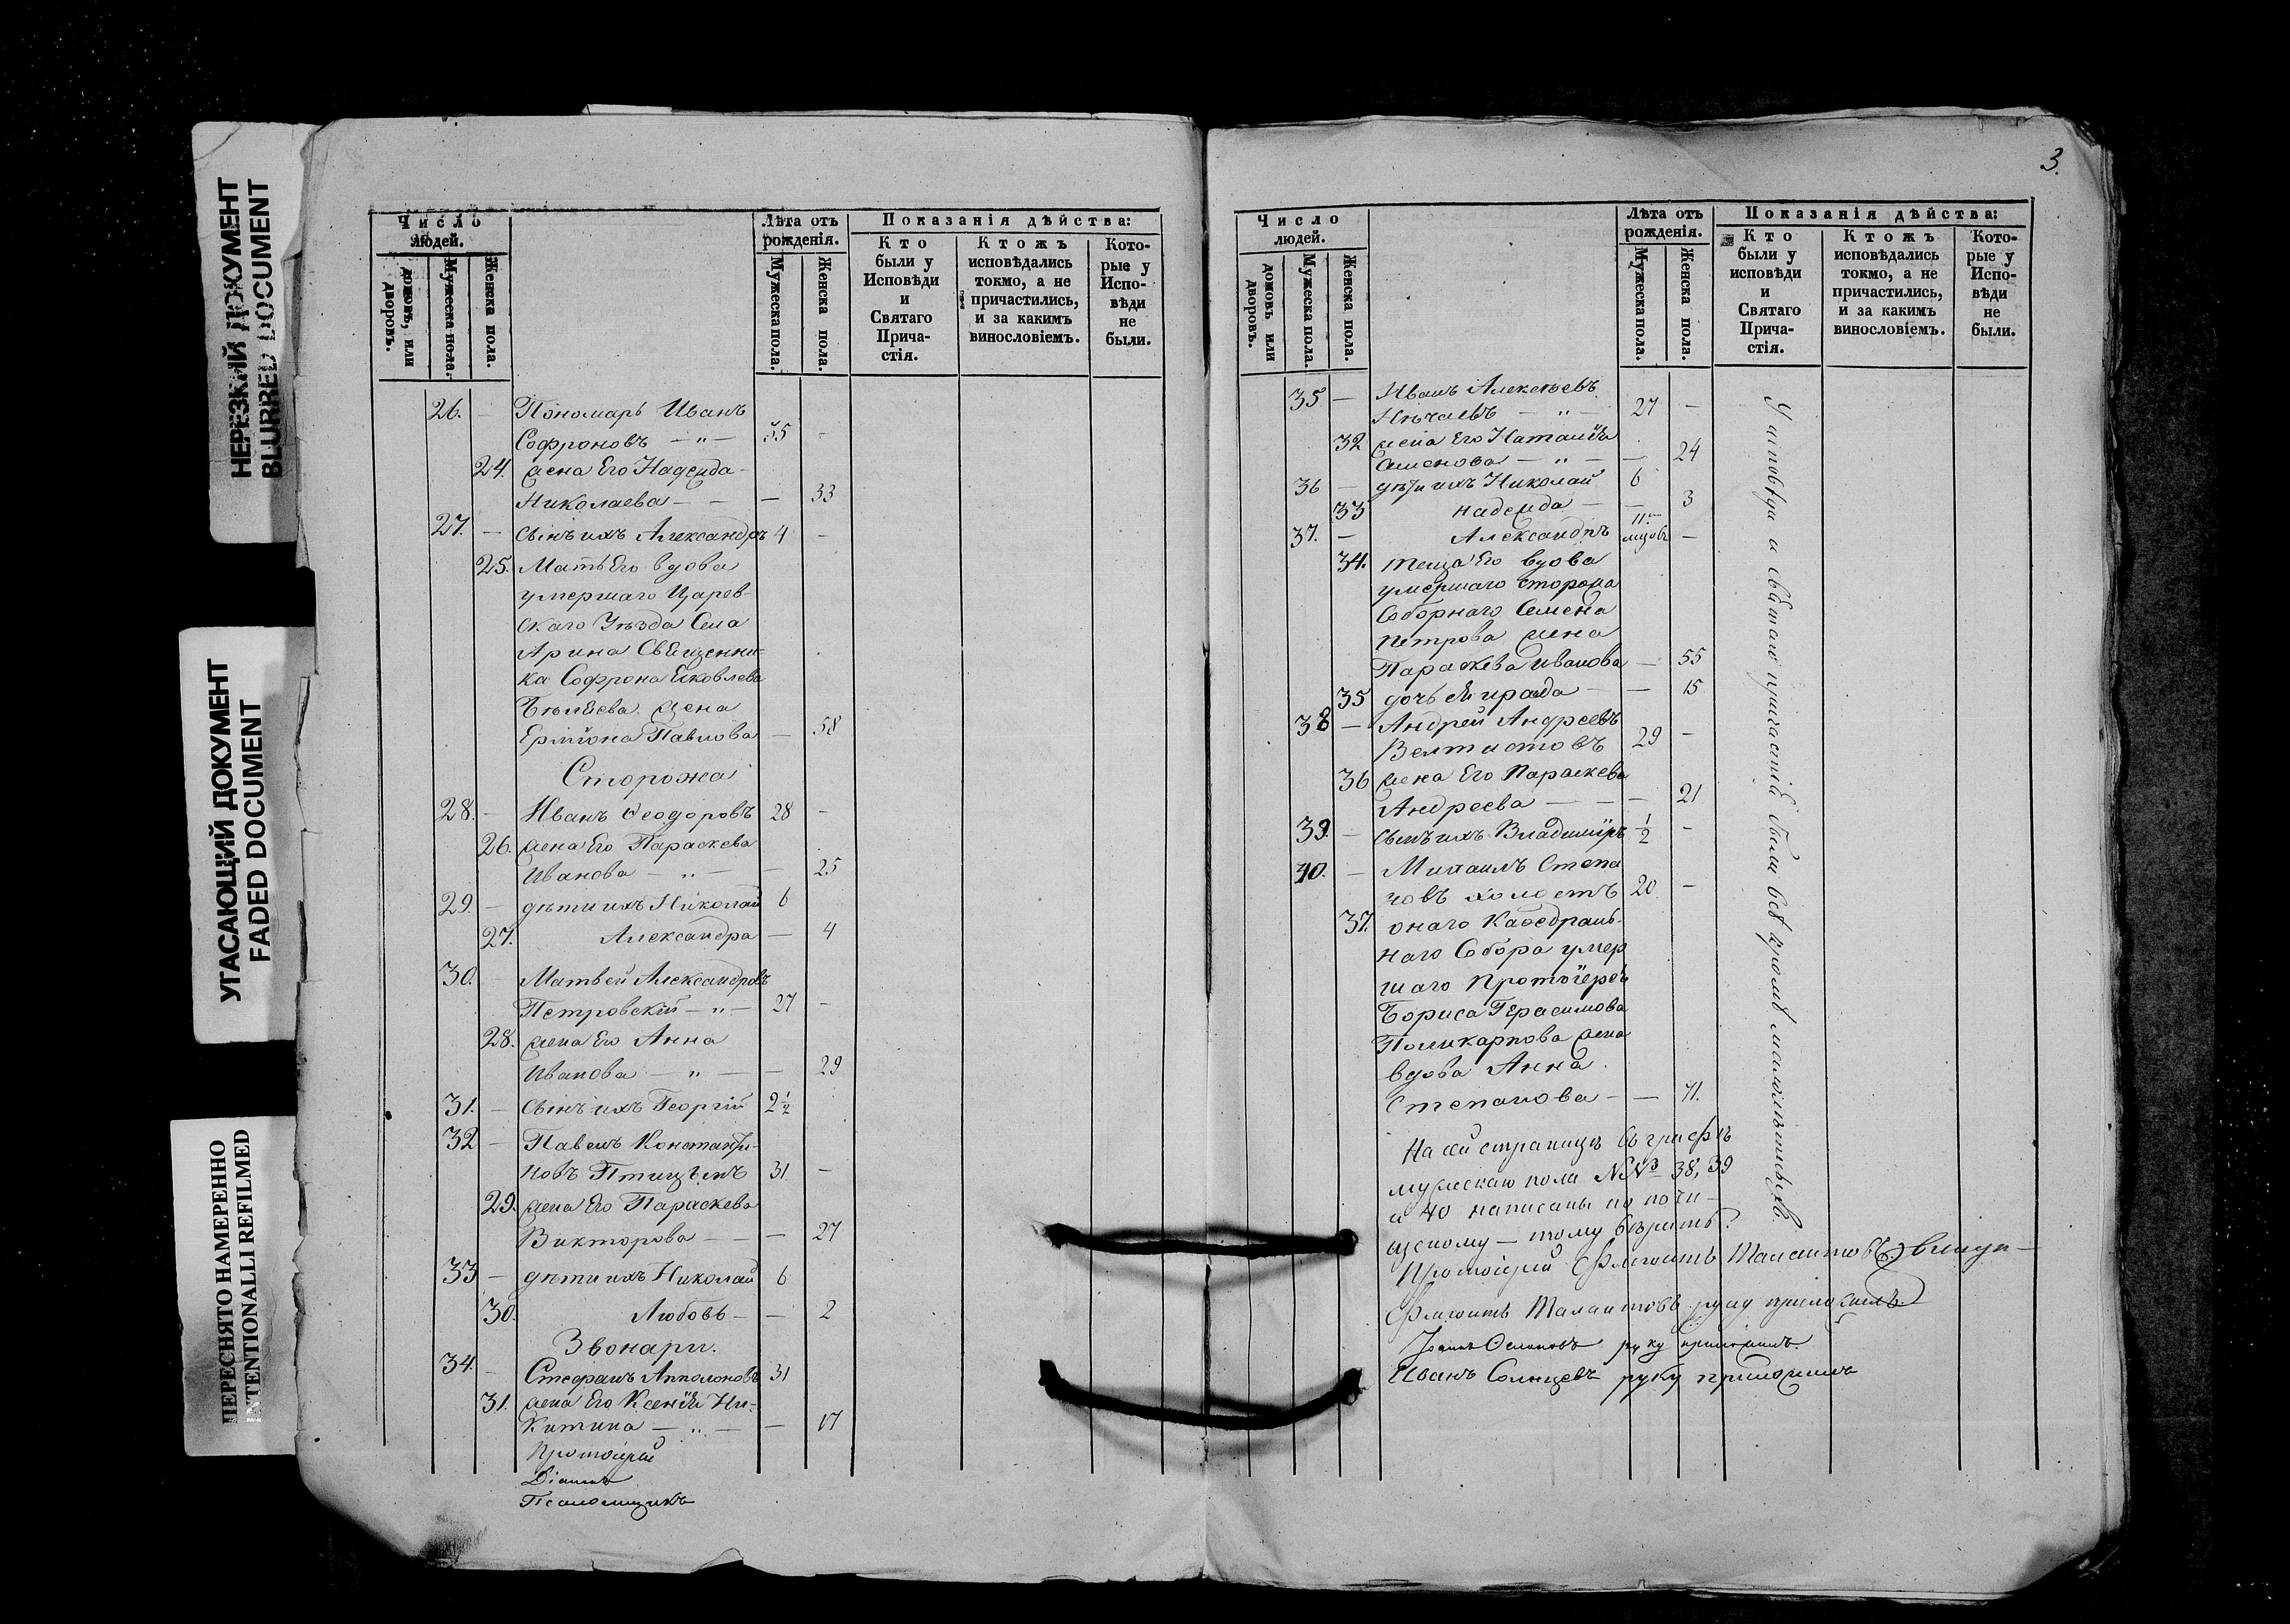 НЕРЕЗКИЙ ДОКУМЕНТ
BLURRED DOCUMENT
УГАСАЮЩИЙ ДОКУМЕНТ
FADED DOCUMENT
ПЕРЕСНЯТО НАМЕРЕННО
INTENTIONALLI REFILMED
Число людей.
домовъ, или дворовъ.
Мужеска пола.
Женска пола.
Лѣта отъ рожденія.
Мужеска пола.
Женска пола.
Показанія дѣйства:
Кто были у Исповѣди и Святаго Прича-стія.
Ктожъ исповѣдались токмо, а не причастились, и за какимъ винословіемъ.
Кото-рые у Испо-вѣди не были.
26. — Пономарь Иванъ
Софроновъ — „ — 35 —
24. жена Его Надежда —
Николаева — — — 33
27. — Сынъ ихъ Александръ 4 —
25. Мать Его вдова
умершаго Царев-
скаго Уѣзда Села
Священни-
ка Софрона Яковлева
Бѣляева жена
Ермiона Павлова — 58
Сторожа
28. — Иванъ Ѳеодоровъ 28 —
26. жена Его Параскева
Иванова — „ — — 25
29. — дѣти ихъ Николай 6
27. Александра — 4
30. — Матвей Александровъ
Петровскій — „ — 27 —
28. жена Его Анна
Иванова — „ — — 29
31. — Сынъ ихъ Георгій 2 1/2
32 — Павелъ Константи-
новъ Птицынъ 31 —
29. жена Его Параскева
Викторова — — — 27
33 — дѣти ихъ Николай 6
30. Любовь — — 2
Звонари.
34. — Стефанъ Апполоновъ 31
31. жена Его Ксенія Ни-
китина — „ — — 17
Протоіерей
Діаконъ
Псаломщикъ
3.
Число людей.
домовъ или дворовъ.
Мужеска пола.
Женска пола.
Лѣта отъ рожденія.
Мужеска пола.
Женска пола.
Показанія дѣйства:
Кто были у исповѣди и Святаго Прича-стія.
Ктожъ исповѣдались токмо, а не причастились, и за какимъ винословіемъ.
Кото-рые у Испо-вѣди не были.
35 — Иванъ Алексѣевъ
Нѣчаевъ — „ — 27 —
32 жена Его Наталія
Семенова — „ — — 24
36 — дѣти ихъ Николай 6
33 Надежда — — 3
37. — Александръ 11 —
34. теща Его вдова
умершаго сторожа
Соборнаго Семена
Петрова жена
Параскева Иванова — 55
35 дочь Ея — — 15
38 — Андрей Андреевъ
Велтистовъ 29 —
36 жена Его Параскева
Андреева — — — 21
39. — Сынъ ихъ Владиміръ 1/2 —
40. — Михаилъ Степа
новъ холостъ 20 —
37. онаго Каѳедраль-
наго Собора умер
шаго Протоіерея
Бориса Герасимова
Поликарпова жена
вдова Анна
Степанова — — 71.
У исповѣди и святаго причастія были всѣ кромѣ малолѣтнихъ.
На сей страницѣ въ графѣ
мужескаго пола №№ 38, 39
и 40 написаны по почи-
щеному — тому вѣрить.
Протоіерей Талантовъ
Талантовъ руку приложилъ
руку приложилъ.
Иванъ Солнцевъ руку приложилъ